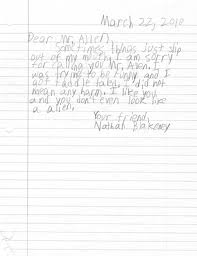 March 22, 2010
Dear Mr. Allen,
Sometimes things just slip
out of my mouth. I am sorry
for calling you Mr. Alien. I
was trying to be funny and I
got taddle taled. I did not
mean any harm. I like you
and you don't even look like
a alien.
Your friend,
Nathan Blakeney